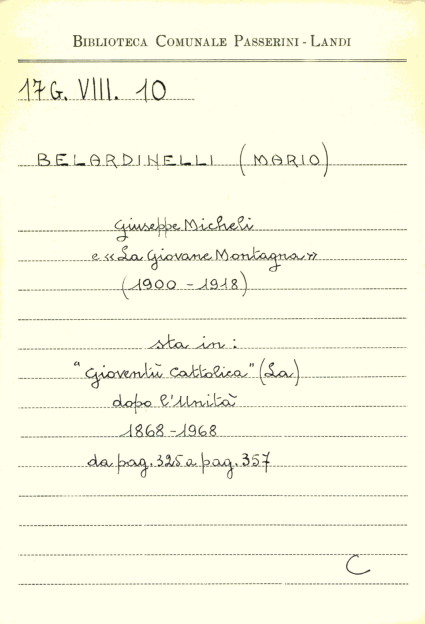 BIBLIOTECA COMUNALE PASSERINI - LANDI
17 G. VIII. 10
BELARDINELLI (MARIO)
Giuseppe Micheli
e «La Giovane Montagna»
(1900 - 1918)
sta in:
"Gioventù Cattolica" (La)
dopo l'Unità
1868-1968
da pag. 325 a pag. 357
C